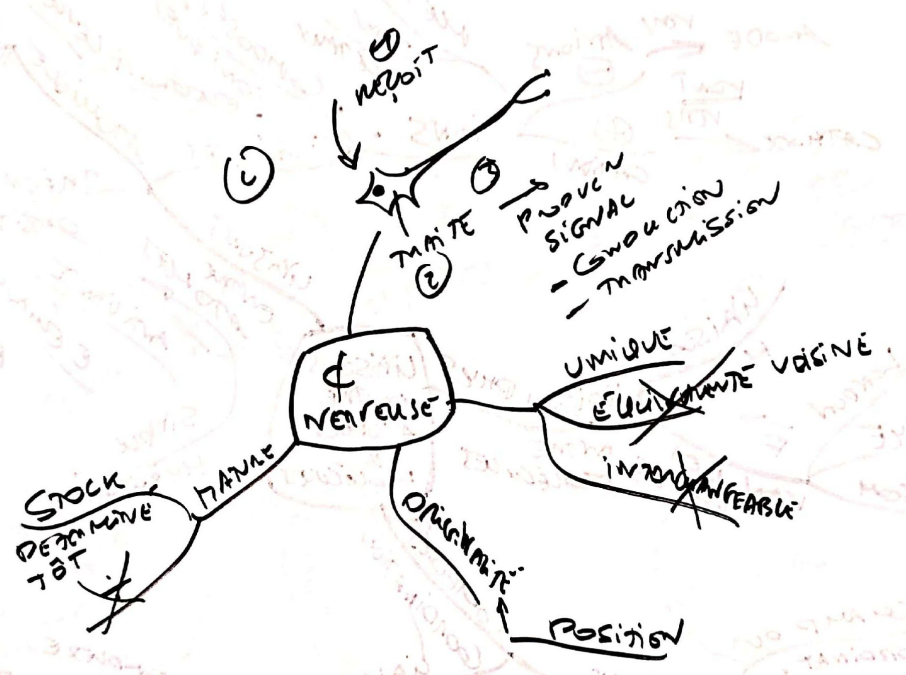 1
REÇOIT
3
PRODUCN
SIGNAL
- CONDUCTION
- TRANSMISSION
TRAITE
2
₵
NERVEUSE
UNIQUE
ÉQUIVALENTE VOISINE
INTERCHANGEABLE
STOCK
DETERMINÉ
TÔT
ORIGINALITÉ
POSITION